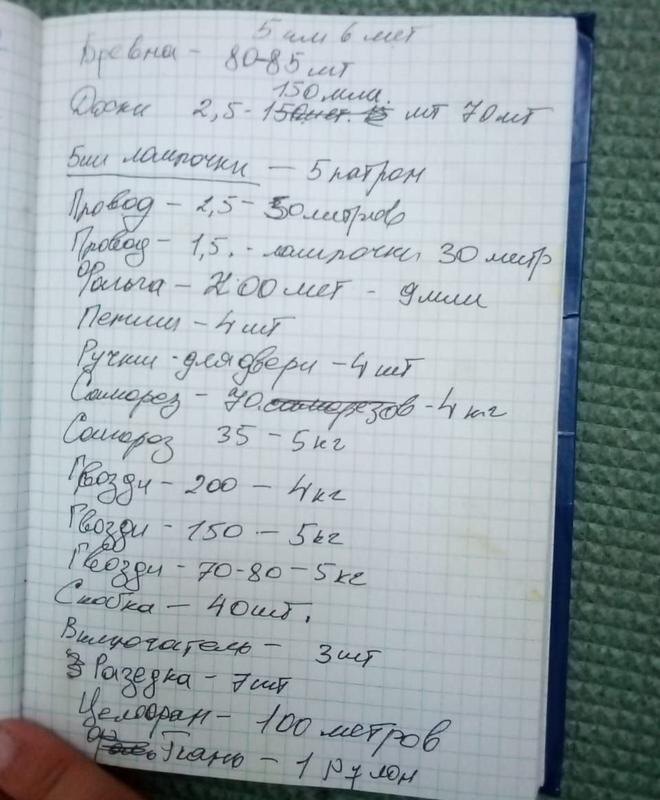 5 или 6 мет
Бревна – 80-85 мт
150 мли.
Доски 2,5 - мт 70 мт
5 ши лампочки – 5 патрон
Провод – 2,5 – 50 литров
Провод – 1,5. - лампочки 30 метр
Фольга – 200 мет - 9 мли
Петли – 4 шт
Ручки - для двери – 4 шт
Саморез – 70 саморезов - 4 кг
Саморез 35 – 5 кг
Гвозди – 200 – 4 кг
Гвозди – 150 – 5 кг
Гвозди – 70-80 – 5 кг
Скобка – 40 шт.
Включатель – 3 шт
Разедка – 7 шт
Целофан – 100 метров
Ткань – 1 рулон